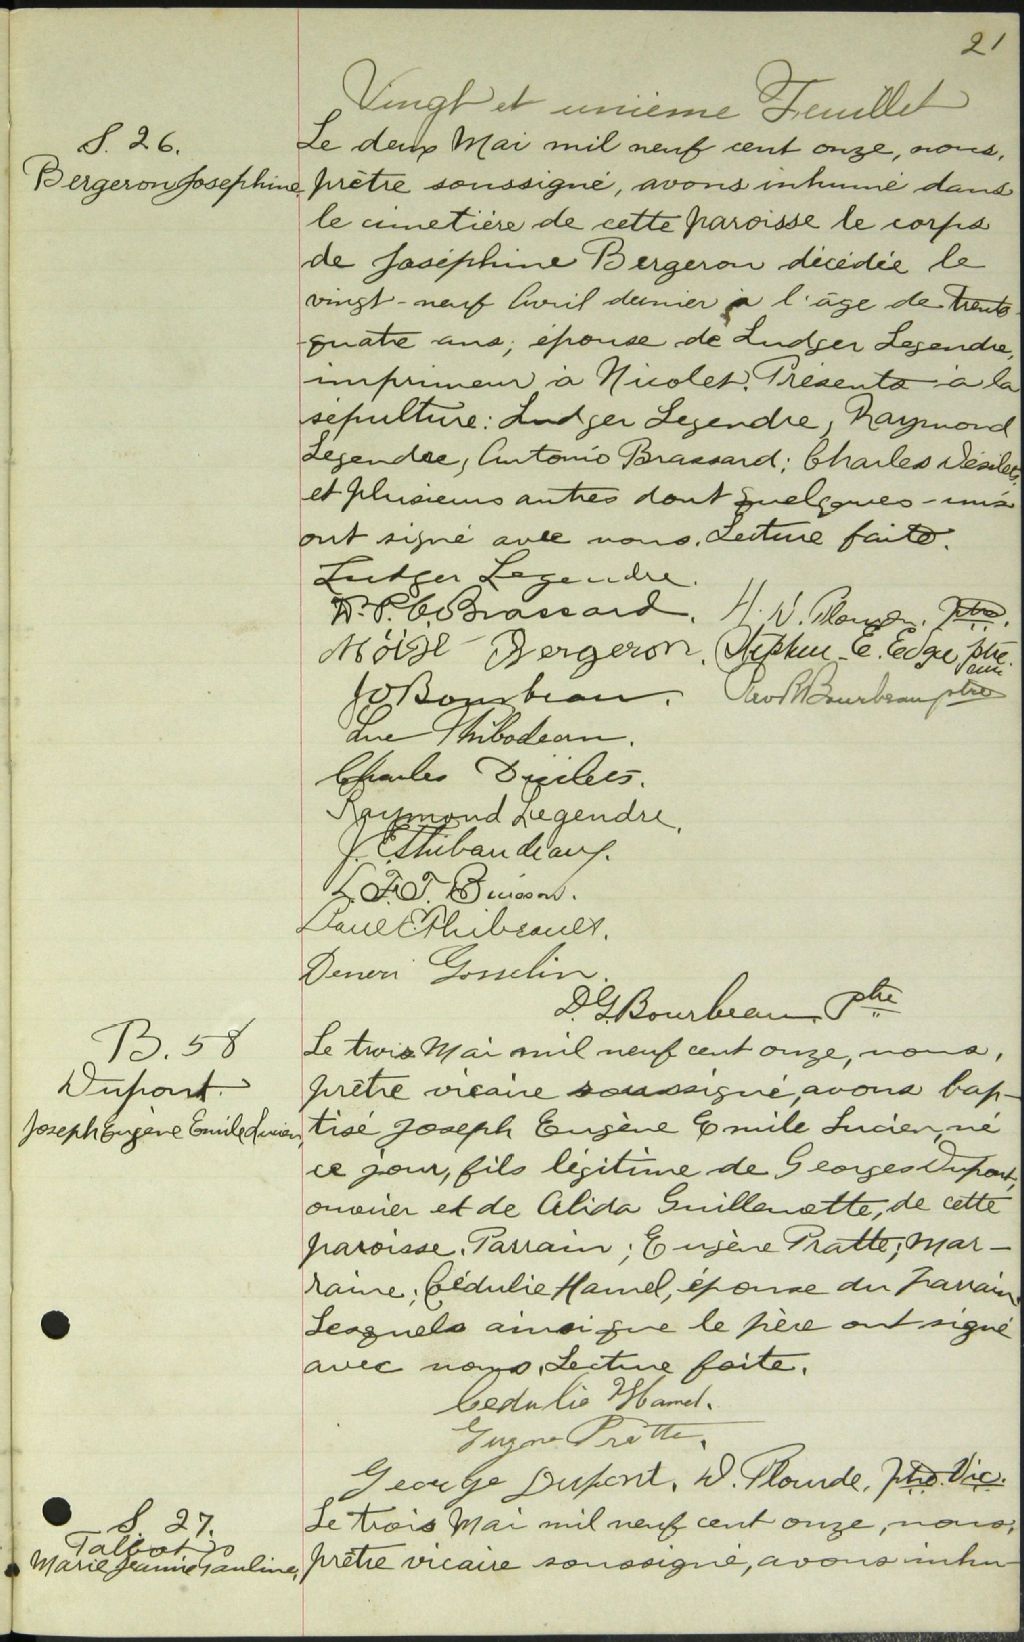 21
Vingt et unième Feuillet
S. 26.
Bergeron Josephine
Le deux Mai mil neuf cent onze, nous,
prêtre soussigné, avons inhumé dans
le cimetière de cette paroisse le corps
de Joséphine Bergeron décédée le
vingt-neuf Avril dernier à l'âge de trente-
quatre ans, épouse de Ludger Legendre,
imprimeur à Nicolet. Présents à la
sépulture: Ludger Legendre, Raymond
Legendre, Antonio Brassard; Charles Désilets,
et plusieurs autres dont quelques-uns
ont signé avec nous. Lecture faite.
Ludger Legendre.
Brassard.
ptre.
Moïse Bergeron. Stephen E. ptre
J O Bourbeau. Bourbeau ptre
Luc Thibodeau.
Charles Désilets.
Raymond Legendre.
J. E. Thibaudeau.
L. F. T. Buisson.
Paul E. Thibeault.
Gosselin.
D. G. Bourbeau Ptre
B. 58
Dupont
Joseph Eugène Emile Lucien,
Le trois Mai mil neuf cent onze, nous,
prêtre vicaire soussigné, avons bap-
tisé Joseph Eugène Emile Lucien, né
ce jour, fils légitime de Georges Dupont,
ouvrier et de Alida Guillemette, de cette
paroisse. Parrain; Eugène Pratte; Mar-
raine; Cédulie Hamel, épouse du parrain.
Lesquels ainsi que le père ont signé
avec nous. Lecture faite.
Cedulie Hamel.
Pratte.
George Dupont. D. Plourde, ptre. Vic.
S. 27.
Talbot
Marie Jeanne Pauline,
Le trois Mai mil neuf cent onze, nous,
prêtre vicaire soussigné, avons inhu-